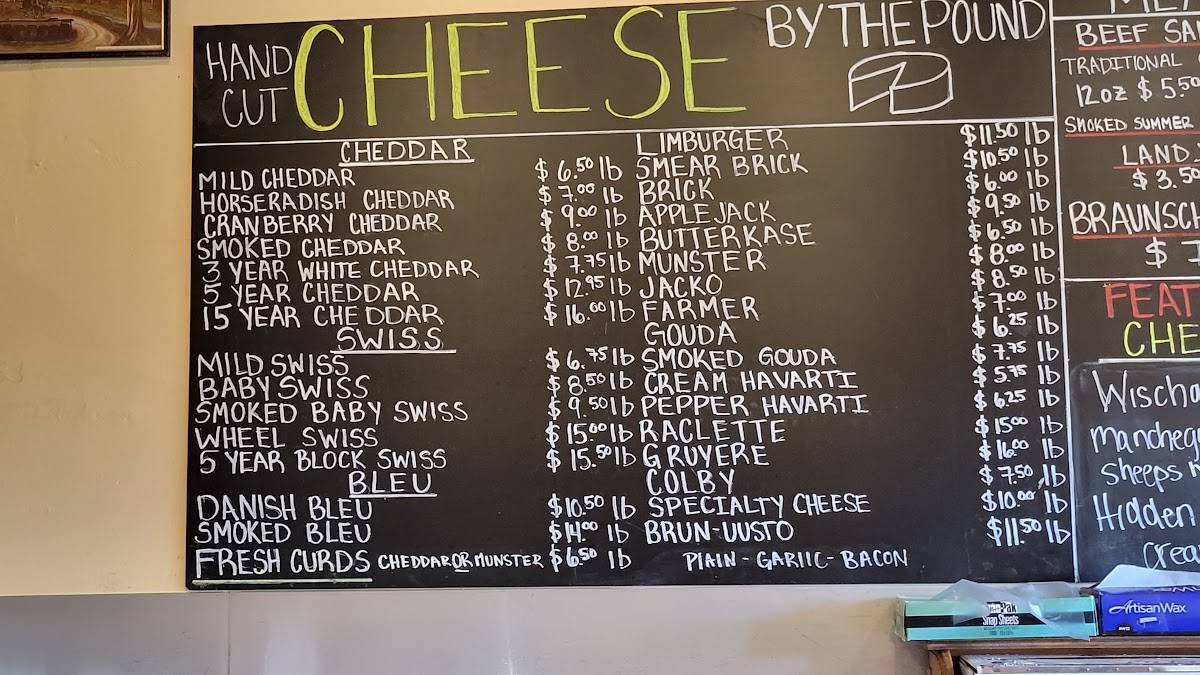 HAND CUT CHEESE BY THE POUND
CHEDDAR
MILD CHEDDAR $6.50 lb
HORSERADISH CHEDDAR $7.00 lb
CRANBERRY CHEDDAR $9.00 lb
SMOKED CHEDDAR $8.00 lb
3 YEAR WHITE CHEDDAR $7.75 lb
5 YEAR CHEDDAR $12.95 lb
15 YEAR CHEDDAR $16.00 lb
SWISS
MILD SWISS $6.75 lb
BABY SWISS $8.50 lb
SMOKED BABY SWISS $9.50 lb
WHEEL SWISS $15.00 lb
5 YEAR BLOCK SWISS $15.50 lb
BLEU
DANISH BLEU $10.50 lb
SMOKED BLEU $14.00 lb
FRESH CURDS CHEDDAR OR MUNSTER $6.50 lb
LIMBURGER $11.50 lb
SMEAR BRICK $10.50 lb
BRICK $6.00 lb
APPLEJACK $9.50 lb
BUTTERKASE $6.50 lb
MUNSTER $8.00 lb
JACKO $8.50 lb
FARMER $7.00 lb
GOUDA $6.25 lb
SMOKED GOUDA $7.75 lb
CREAM HAVARTI $5.75 lb
PEPPER HAVARTI $6.25 lb
RACLETTE $15.00 lb
GRUYERE $16.00 lb
COLBY $7.50 lb
SPECIALTY CHEESE $10.00 lb
BRUN-UUSTO $11.50 lb
PLAIN - GARLIC - BACON
BEEF
TRADITIONAL
12oz $5.50
SMOKED SUMMER
LAND
$3.50
BRAUNSCH
$7
FEAT
CHE
Wischa
mancheg
sheeps
Hidden
Crea
Pak
Snap Sheets
ArtisanWax